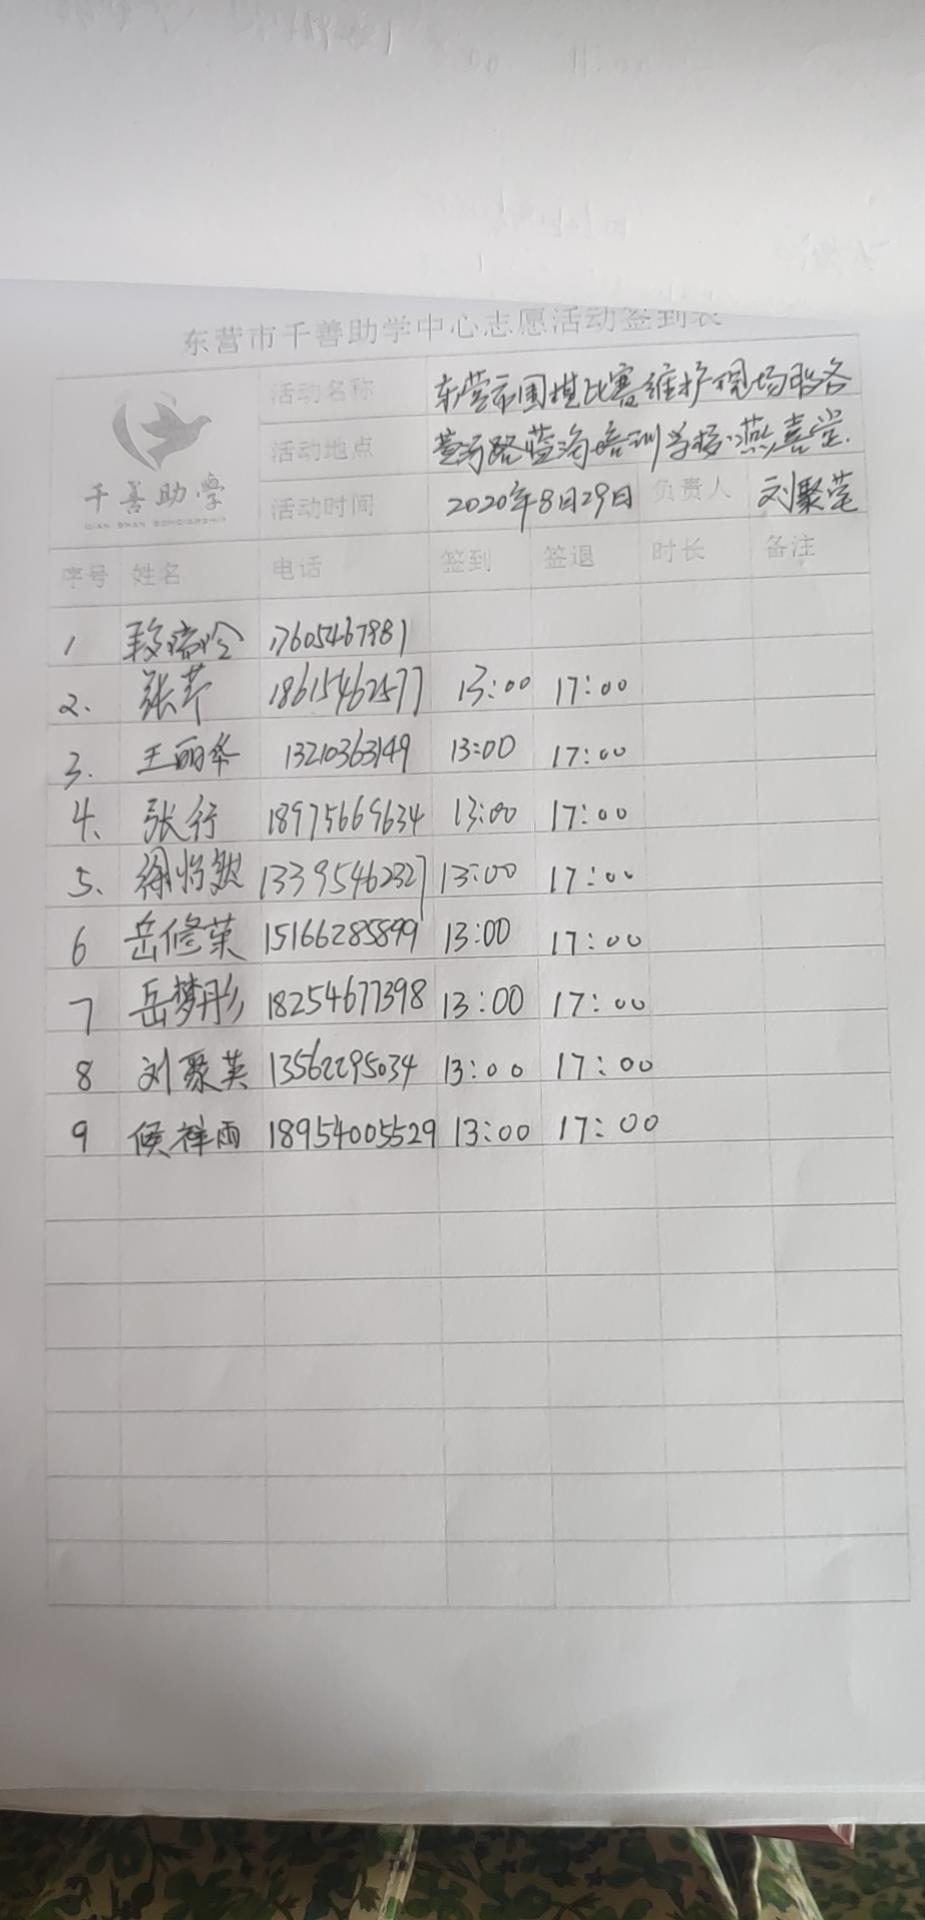 东营市千善助学中心志愿活动签到表
千善助学
QIAN SHAN SCHOLARSHIP
活动名称 东营市围棋比赛维护现场服务
活动地点 路蓝海培训学校燕喜堂.
活动时间 2020年8日29日 负责人 刘聚莹
序号 姓名 电话 签到 签退 时长 备注
1 17605467981
2. 张芹 18615462577 13:00 17:00
3. 王丽华 13210363149 13:00 17:00
4. 张行 18975669634 13:00 17:00
5. 徐怡然 13395462327 13:00 17:00
6 岳修荣 15166285899 13:00 17:00
7 岳梦彤 18254677398 13:00 17:00
8 刘聚英 13562295034 13:00 17:00
9 候祥雨 18954005529 13:00 17:00